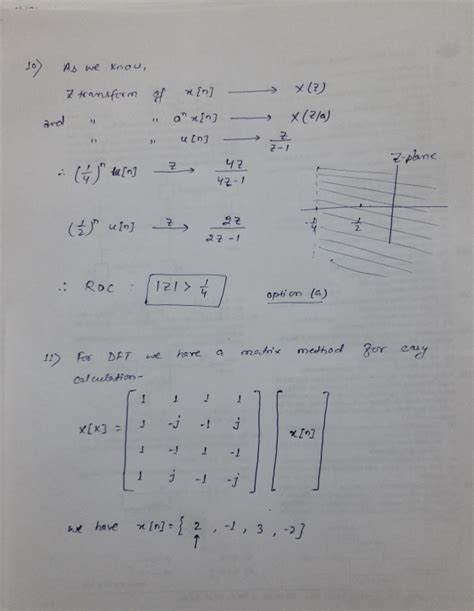 10) As we know,
Z transform of x[n] ⟶ X(Z)
and " " aⁿ x[n] ⟶ X(Z/a)
" " u[n] ⟶ Z/(Z-1)
∴ (1/4)ⁿ u[n] —Z→ 4Z/(4Z-1)
Z-plane
-1/4 -1/2
(1/2)ⁿ u[n] —Z→ 2Z/(2Z-1)
∴ ROC : |Z| > 1/4 option (a)
11) For DFT we have a matrix method for easy
calculation-
X[K] = [ 1 1 1 1
1 -j -1 j
1 -1 1 -1
1 j -1 -j ] [ x[n] ]
we have x[n] = { 2 , -1 , 3 , -2 }
↑